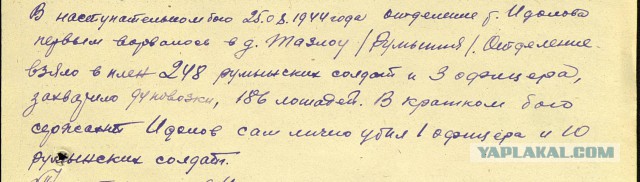 В наступательном бою 25.08.1944 года отделение т. Идолова
первым ворвалось в д. Тазлоу /Румыния/. Отделение
взяло в плен 248 румынских солдат и 3 офицера,
захватило повозки, 186 лошадей. В кратком бою
сержант Идолов сам лично убил 1 офицера и 10
румынских солдат.
YAPLAKAL.COM